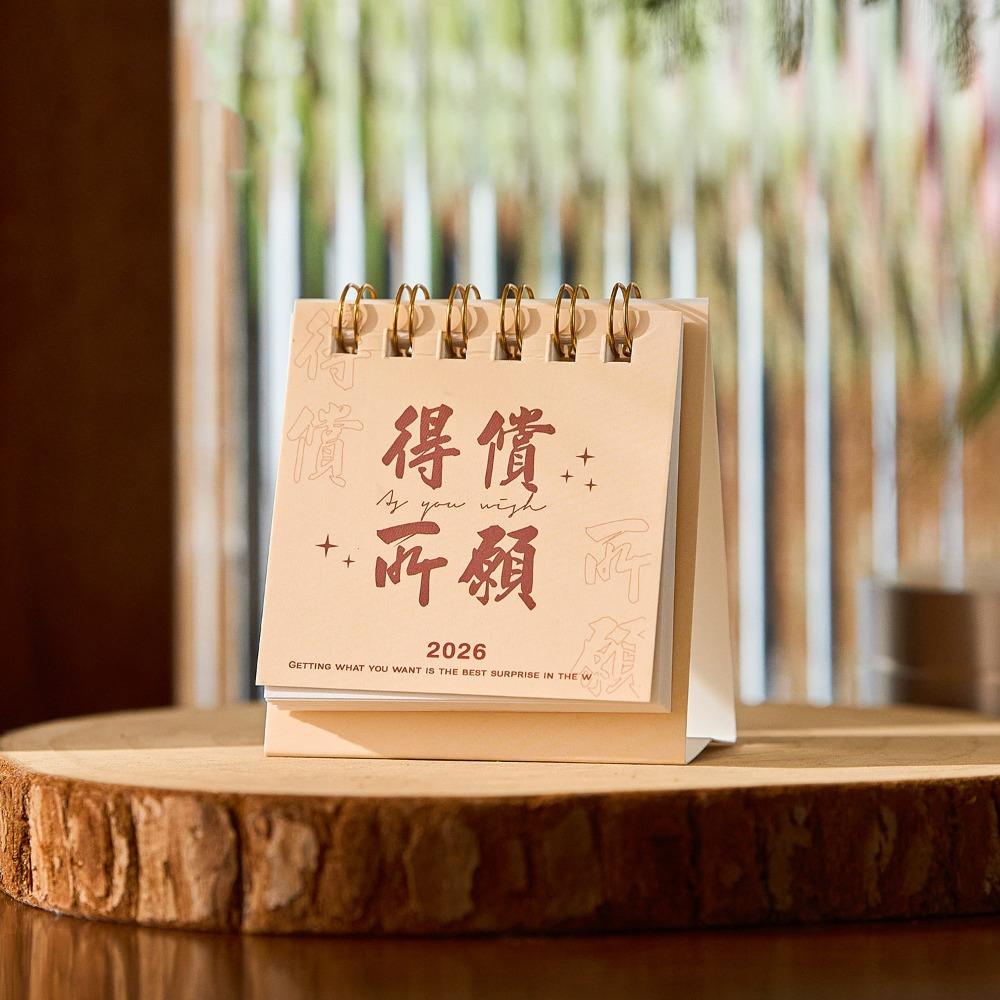 得
償
得償
As you wish
所願
所
願
2026
GETTING WHAT YOU WANT IS THE BEST SURPRISE IN THE W